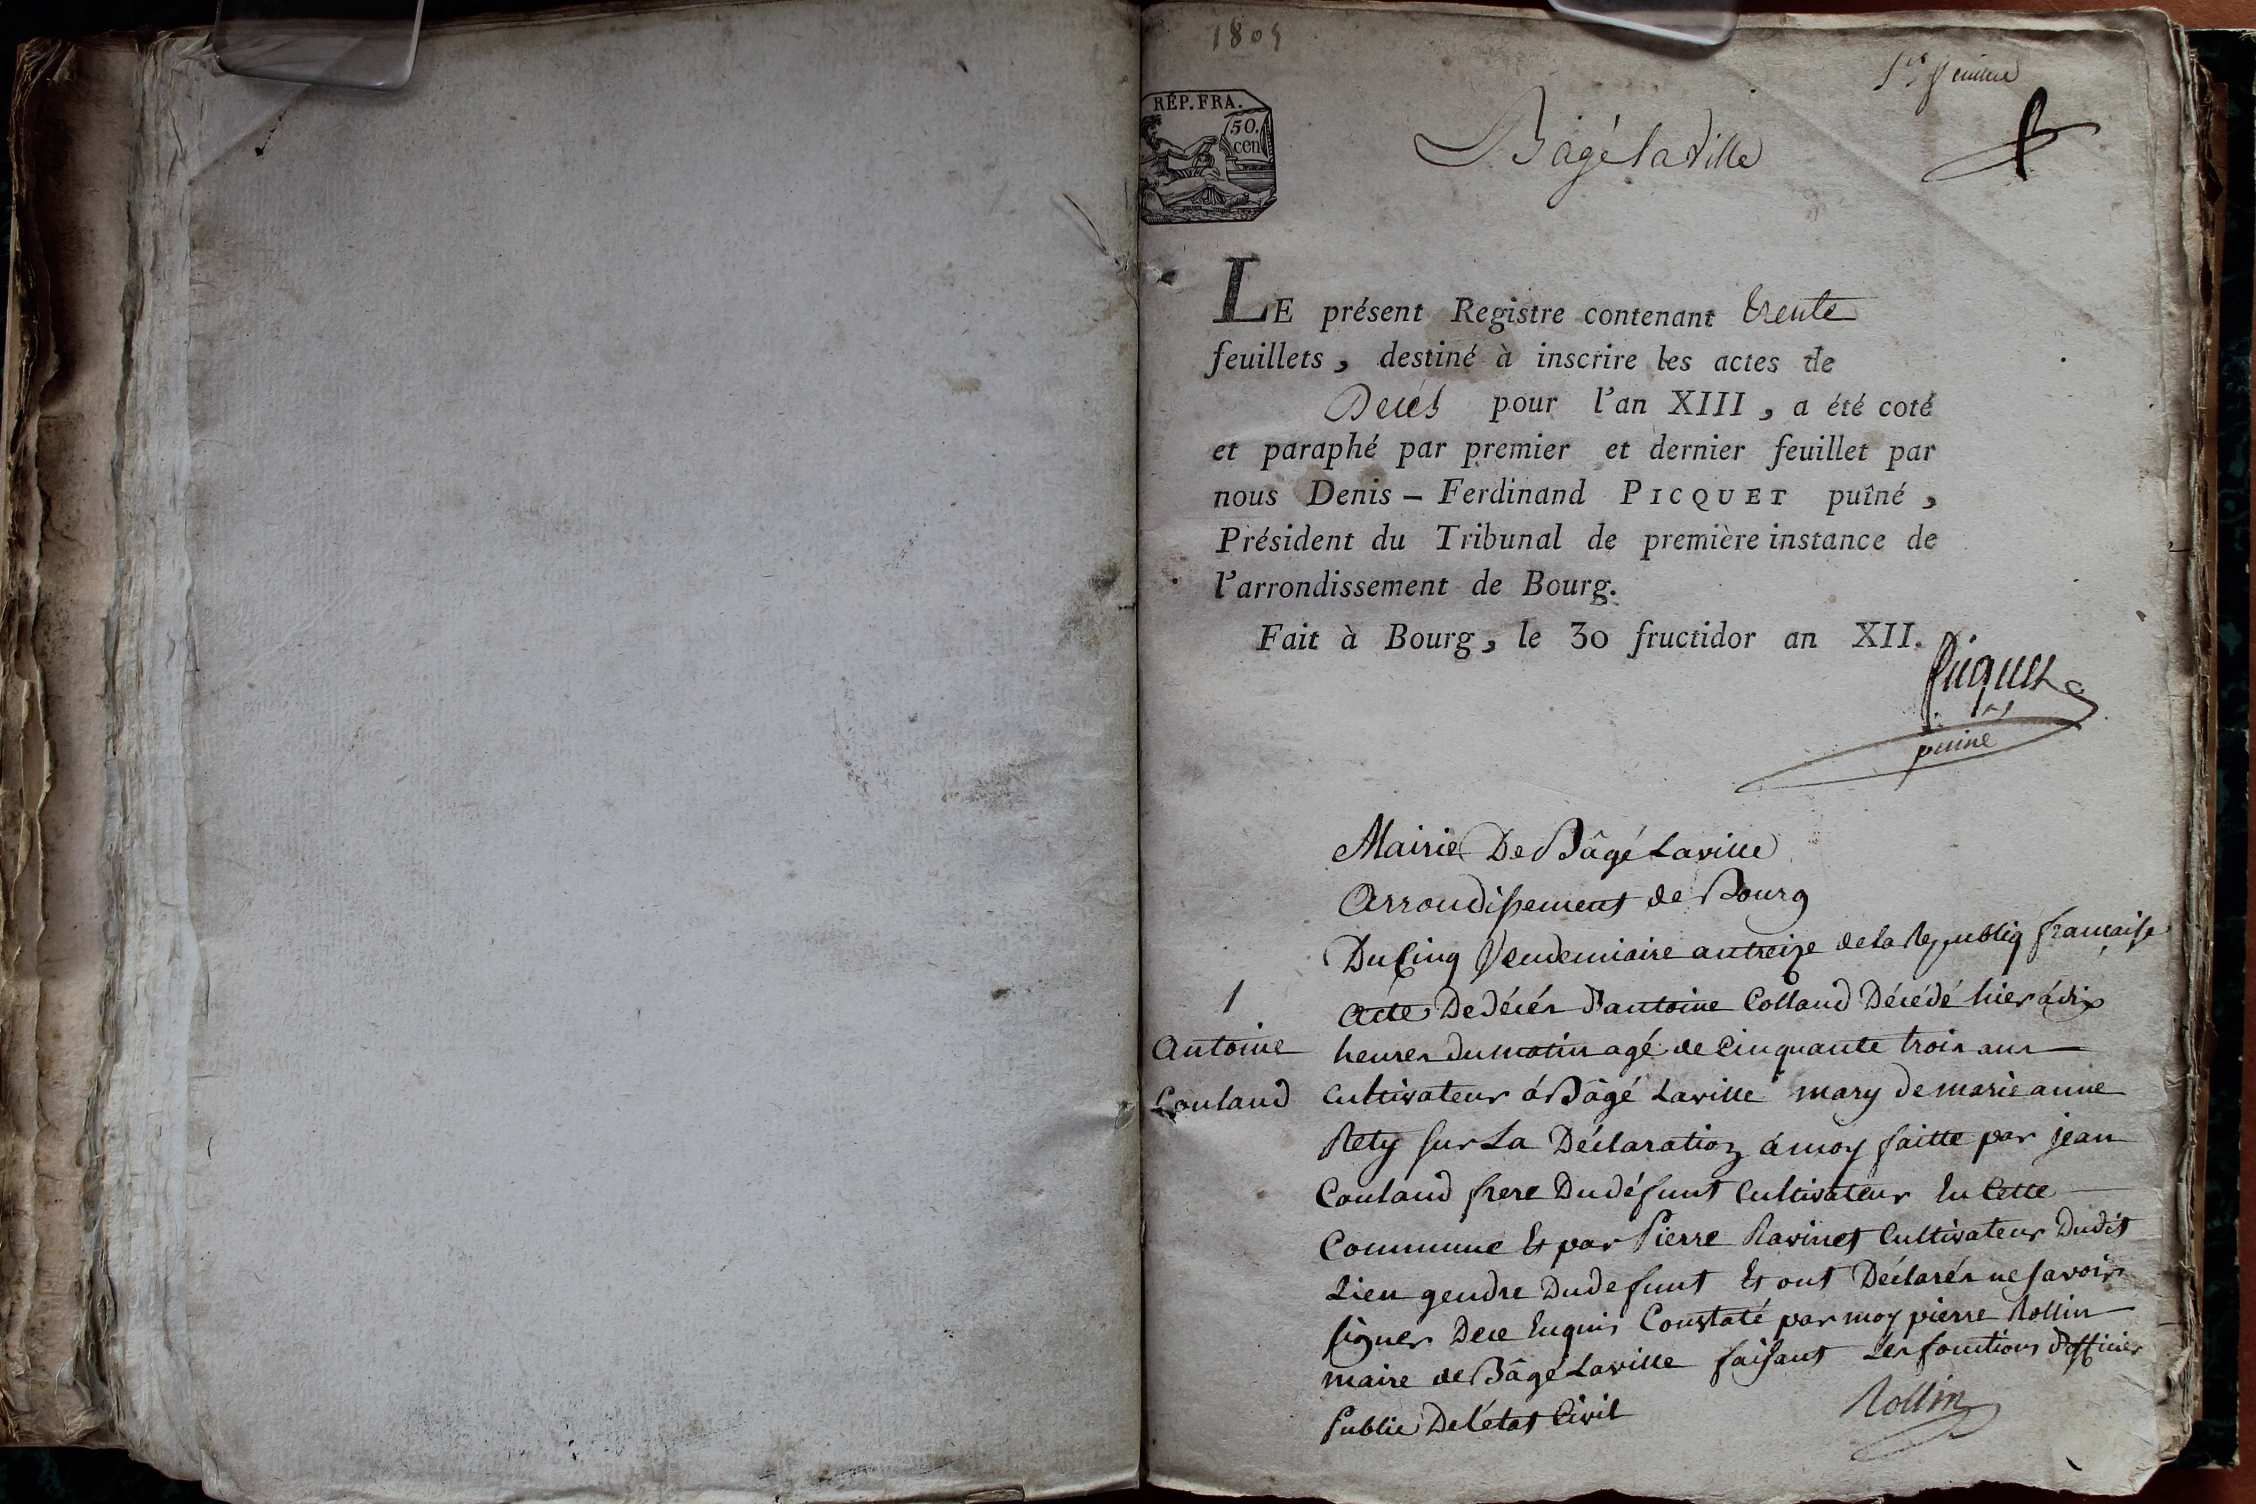 1805
1er feuillet
RÉP. FRA.
50.
cen
Bâgé la Ville
LE présent Registre contenant trente
feuillets, destiné à inscrire les actes de
Décès pour l'an XIII, a été coté
et paraphé par premier et dernier feuillet par
nous Denis-Ferdinand PICQUET puîné,
Président du Tribunal de première instance de
l'arrondissement de Bourg.
Fait à Bourg, le 30 fructidor an XII.
Picquet
puiné
Mairie De Bâgé Laville
Arrondissement de Bourg
Du Cinq Vendemiaire an treize de la Republiq française
1
Acte De décés d'antoine Colland Décédé hier à dix
Antoine
heures du matin agé de Cinquante trois ans
Couland
Cultivateur á Bâgé Laville mary de marie anne
Rety sur La Déclaration á moy faitte par jean
Couland frere Du défunt Cultivateur En Cette
Commune Et par Pierre Ravinet Cultivateur Dudit
Lieu gendre Du defunt Et ont Déclarés ne savoir
signer De ce Enquis Constaté par moy pierre Rollin
maire de Bâgé Laville faisant Les fonctions d'officier
Public De L'état Civil
Rollin